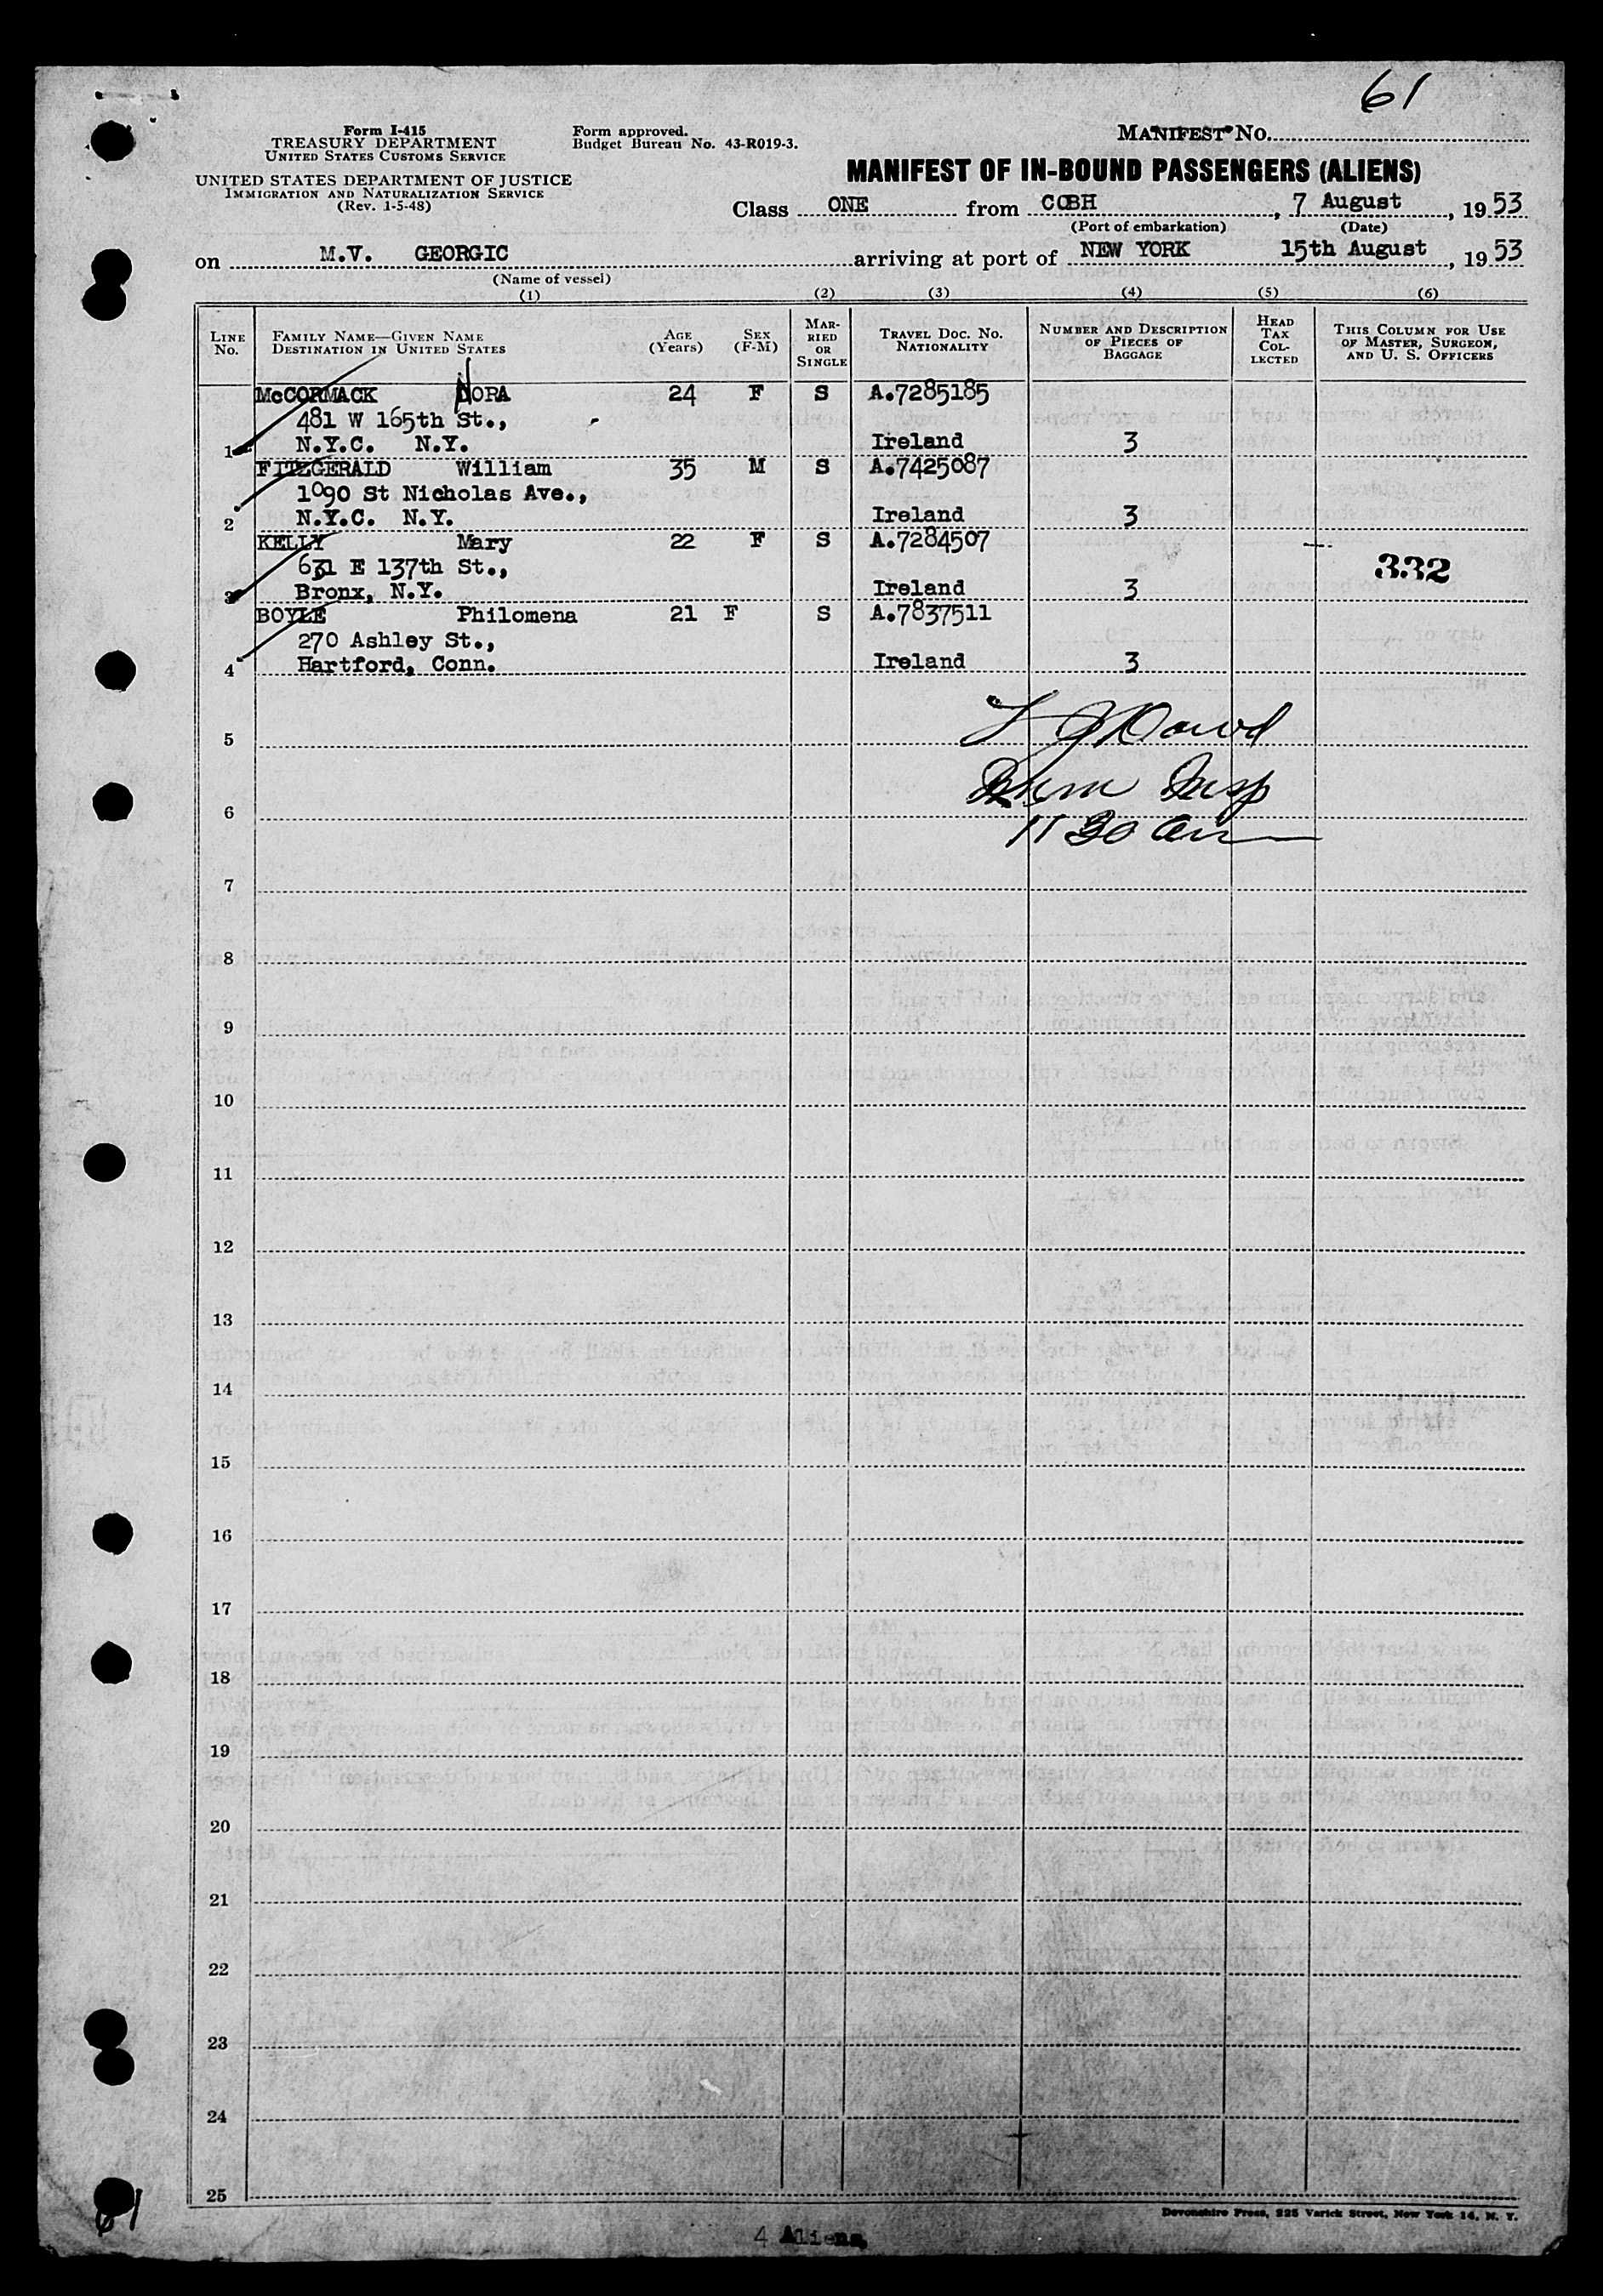 61
Form I-415
TREASURY DEPARTMENT
UNITED STATES CUSTOMS SERVICE
UNITED STATES DEPARTMENT OF JUSTICE
IMMIGRATION AND NATURALIZATION SERVICE
(Rev. 1-5-48)
Form approved.
Budget Bureau No. 43-R019-3.
MANIFEST NO.
MANIFEST OF IN-BOUND PASSENGERS (ALIENS)
Class ONE from COBH, 7 August, 1953
(Port of embarkation) (Date)
on M.V. GEORGIC arriving at port of NEW YORK 15th August, 1953
(Name of vessel)
(1) (2) (3) (4) (5) (6)
LINE NO.
FAMILY NAME—GIVEN NAME
DESTINATION IN UNITED STATES
AGE (Years)
SEX (F-M)
MARRIED OR SINGLE
TRAVEL DOC. NO.
NATIONALITY
NUMBER AND DESCRIPTION OF PIECES OF BAGGAGE
HEAD TAX COLLECTED
THIS COLUMN FOR USE OF MASTER, SURGEON, AND U. S. OFFICERS
McCORMACK NORA 24 F S A.7285185
481 W 165th St.,
1 N.Y.C. N.Y. Ireland 3
FITZGERALD William 35 M S A.7425087
1090 St Nicholas Ave.,
2 N.Y.C. N.Y. Ireland 3
KELLY Mary 22 F S A.7284507
631 E 137th St., 332
3 Bronx, N.Y. Ireland 3
BOYLE Philomena 21 F S A.7837511
270 Ashley St.,
4 Hartford, Conn. Ireland 3
5
Insp
6
11 30 am
7
8
9
10
11
12
13
14
15
16
17
18
19
20
21
22
23
24
25
Devonshire Press, 225 Varick Street, New York 14, N. Y.
61
4 Aliens.